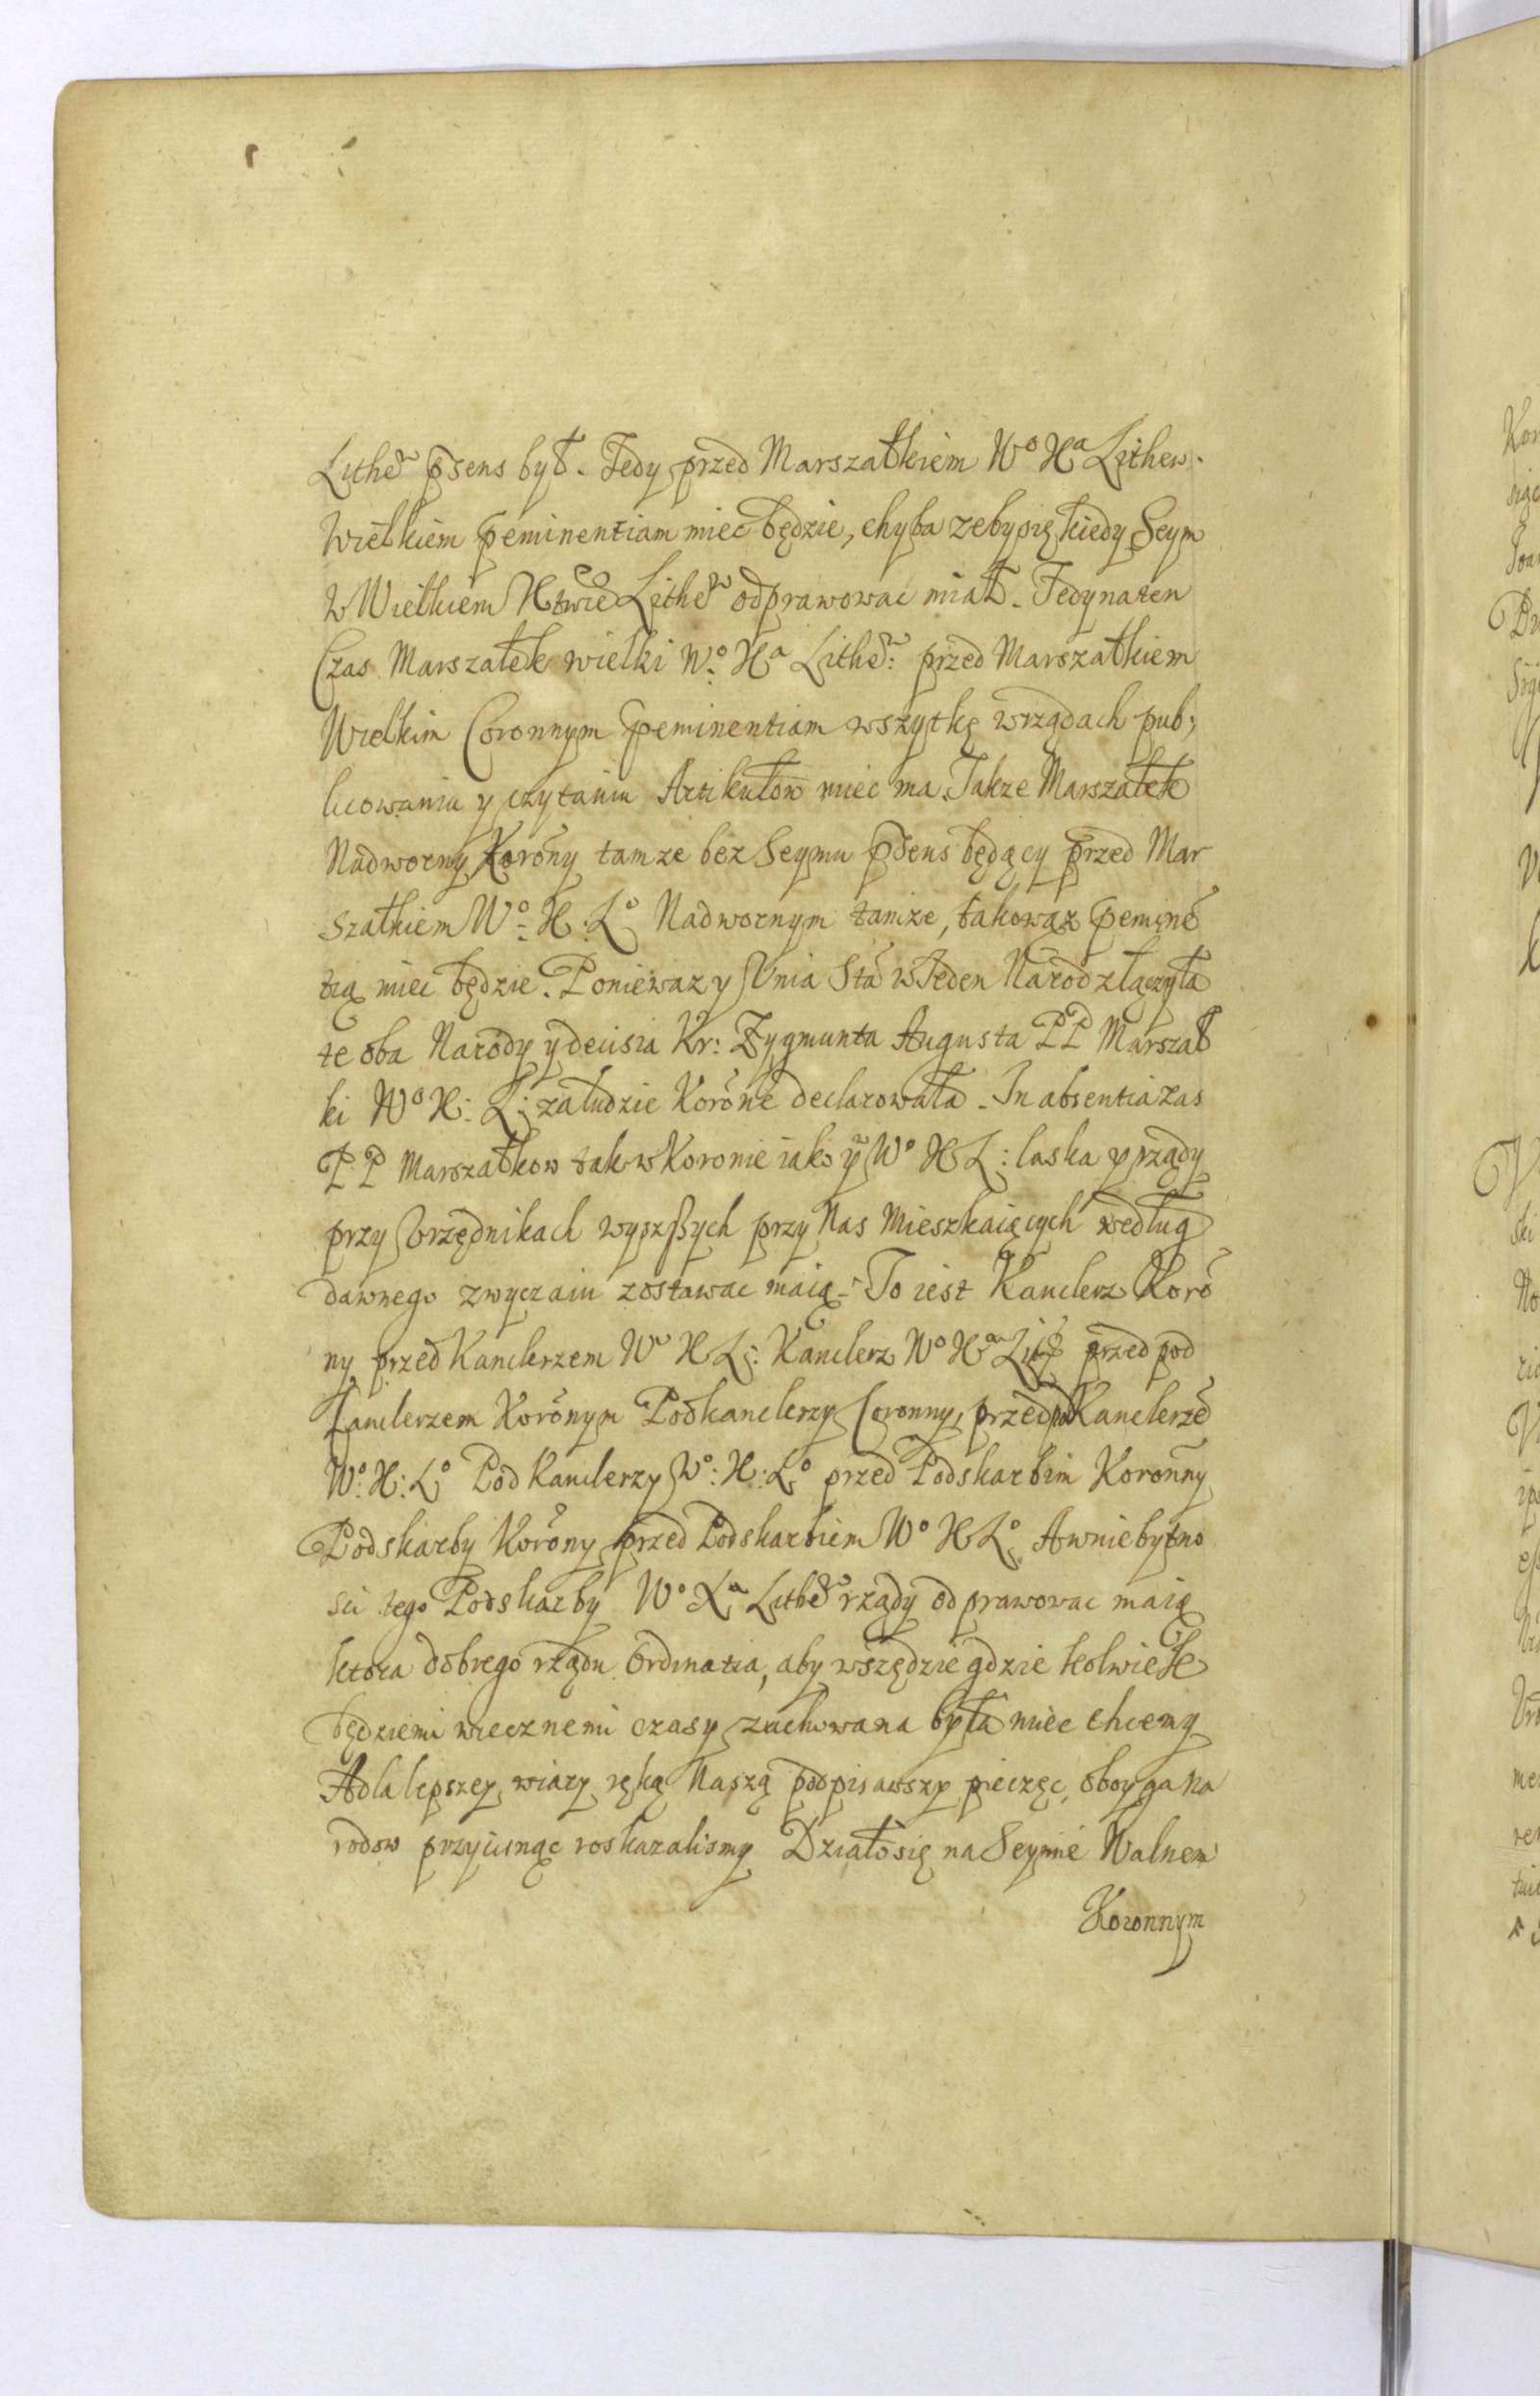 Lithew psens był. Tedy przed Marszałkiem Wo Xa Lithew.
Wielkiem peminentiam miec będzie, chyba zeby się kiedy Seym
w Wielkiem Xstwie Lithew odprawowac miał. Tedy na ten
Czas Marszałek wielki Wo Xa Lithew: przed Marszałkiem
Wielkim Coronnym peminentiam wszytkę w rzędach pub,
licowaniu y czytaniu Artikułow miec ma. Takze Marszałek
Nadworny Korony tamze bez Seymu psens będący przed Mar
szałkiem Wo: X: Lo Nadwornym tamze, takowąz pemine
tią miec będzie. Poniewaz y Vnia Sta w Jeden Narod złączyła
te oba Narody y decisia Kr: Zygmunta Augusta PP Marszał
ki Wo X: L: za ludzie Korone declarowała. In absentia zas
PP Marszałkow tak w Koronie iako y Wo X L: laska y rządy
przy Vrzędnikach wyszszych przy Nas Mieszkaiących według
dawnego zwyczaiu zostawac maią. To iest Kanclerz Koro
ny przed Kanclerzem Wo X L: Kanclerz Wo Xa Lit przed pod
kanclerzem Koronym Podkanclerzy Coronny, przed pod Kanclerze
Wo: X: Lo Pod Kanclerzy Wo: X: Lo przed Podskarbim Koronny
Podskarby Korony przed Podskarbiem Wo X Lo A w niebytno
sci tego Podskarby Wo Xa Lithew rządy odprawowac maią
ktora dobrego rządu Ordinatia, aby wszędzie gdzie kolwiek
będziemi wiecznemi czasy zachowana była miec chcemy
A dla lepszey wiary ręką Naszą podpisawszy pieczęc, oboyga Na
rodow przycisnąc roskazalismy Działo się na Seymie Walnem
Koronnym